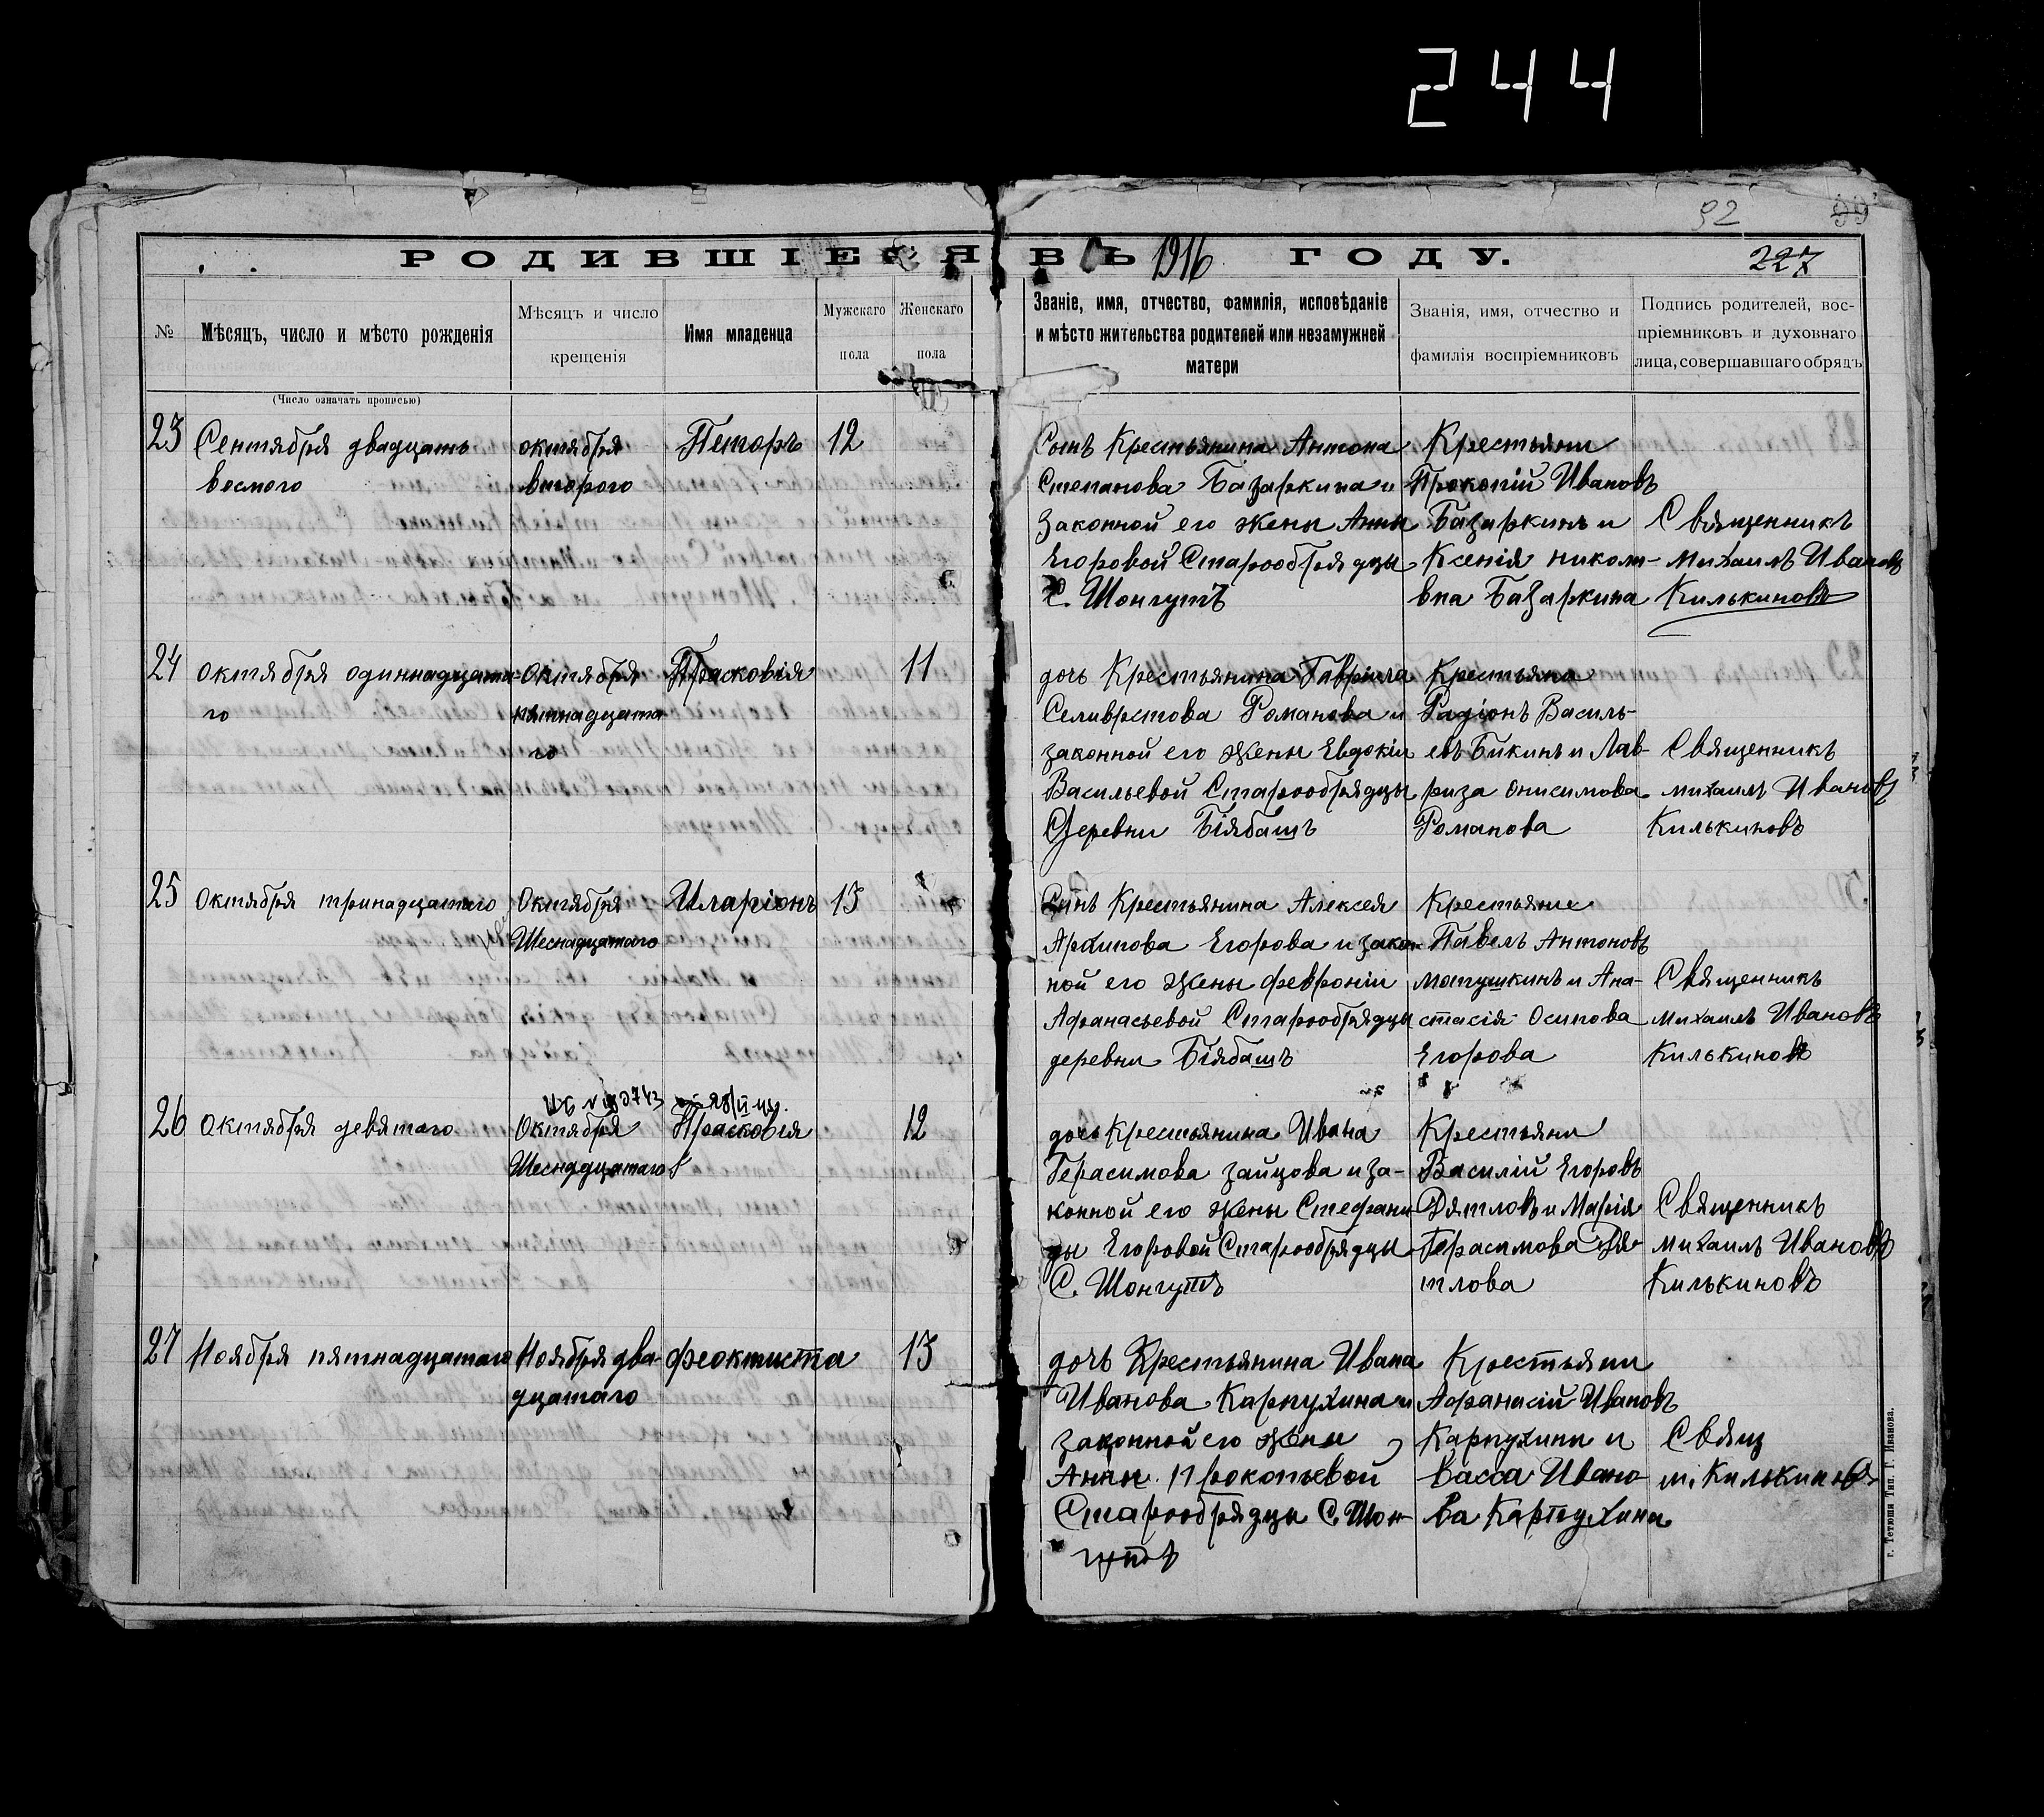 244
92
99
РОДИВШІЕСЯ ВЪ 1916 ГОДУ.
227
№
Мѣсяцъ, число и мѣсто рожденія
Мѣсяцъ и число
крещенія
Имя младенца
Мужскаго
пола
Женскаго
пола
Званіе, имя, отчество, фамилія, исповѣданіе
и мѣсто жительства родителей или незамужней
матери
Званія, имя, отчество и
фамилія воспріемниковъ
Подпись родителей, вос-
пріемниковъ и духовнаго
лица, совершавшаго обрядъ
(Число означать прописью)
23
Сентября двадцать
восмого
октября
второго
Петоръ
12
Сынъ Крестьянина Антона
Степанова Базаркина и
Законной его жены Анны
Егоровой Старообрядцы
С. Шонгутъ
Крестьяни
Прокопій Ивановъ
Базаркинъ и
Ксенія никола-
вна Базаркина
Священникъ
михаилъ Ивановъ
Килькиновъ
24
октября одиннадцата-
го
Октября
пятнадцата
го
Прасковія
11
дочь Крестьянина Гавріила
Селиврстова Романова и
законной его жены Евдокіи
Васильевой Старообрядцы
Деревни Біябашъ
Крестьяна
Радіонъ Василь-
евъ Бикинъ и Лав-
риза Онисимова
Романова
Священникъ
михаилъ Ивановъ
Килькиновъ
25
Октября тринадцатаго
Октября
Шеснадцатаго
Иларіонъ
13
Сынъ Крестьянина Алексея
Архипова Егорова и закон-
ной его жены февроніи
Афанасьевой Старообрядцы
деревни Біябашъ
Крестьяне
Павелъ Антоновъ
мотушкинъ и Ана-
стасія Осипова
Егорова
Священникъ
михаилъ Ивановъ
Килькиновъ
26
Октября девятаго
Октября
Шеснадцатаго
Прасковія
12
дочь Крестьянина Ивана
Герасимова зайцова и за-
конной его жены Стефани
ды Егоровой Старообрядцы
С. Шонгутъ
Крестьяни
Василій Егоровъ
Дятловъ и Марія
Герасимова Дя
тлова
Священникъ
михаилъ Ивановъ
Килькиновъ
27
Ноября пятнадцатаго
Ноября два-
дцатаго
феоктиста
13
дочь Крестьянина Ивана
Иванова Карпухина и
законной его жены
Анны Прокопьевой
Старообрядцы С. Шон-
гутъ
Крестьяни
Афанасій Ивановъ
Карпухинъ и
васса Ивано-
ва Карпухина
Свящ
м. Килькиновъ
г. Тетюши Тип. Г. Иванова.